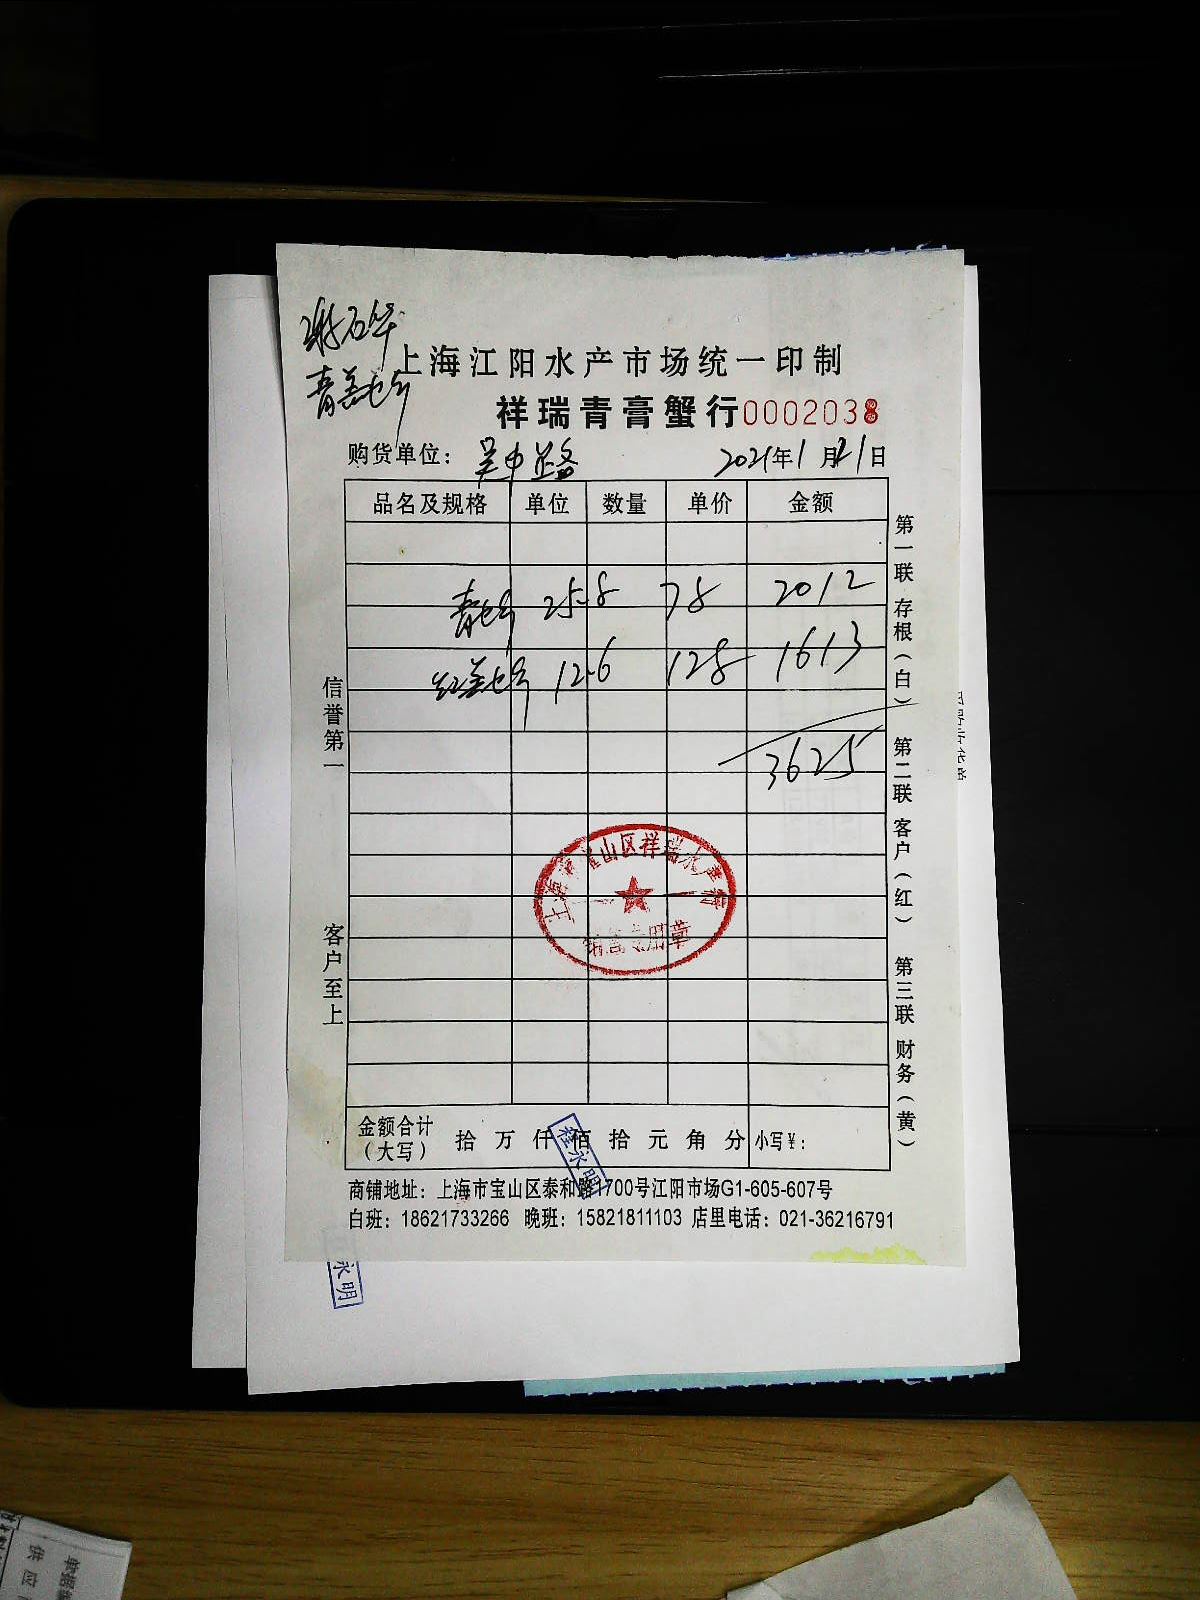 上海江阳水产市场统一印制
祥瑞青膏蟹行0002038
购货单位：吴中路 2021年1月21日
品名及规格 单位 数量 单价 金额
25.8 78 2012
12.6 128 1613
3625
信誉第一
客户至上
第一联 存根（白） 第二联 客户（红） 第三联 财务（黄）
上海市宝山区祥瑞水产行
销售专用章
金额合计（大写） 拾万仟佰拾元角分 小写¥：
程永明
商铺地址：上海市宝山区泰和路1700号江阳市场G1-605-607号
白班：18621733266 晚班：15821811103 店里电话：021-36216791
永明
单据
供应